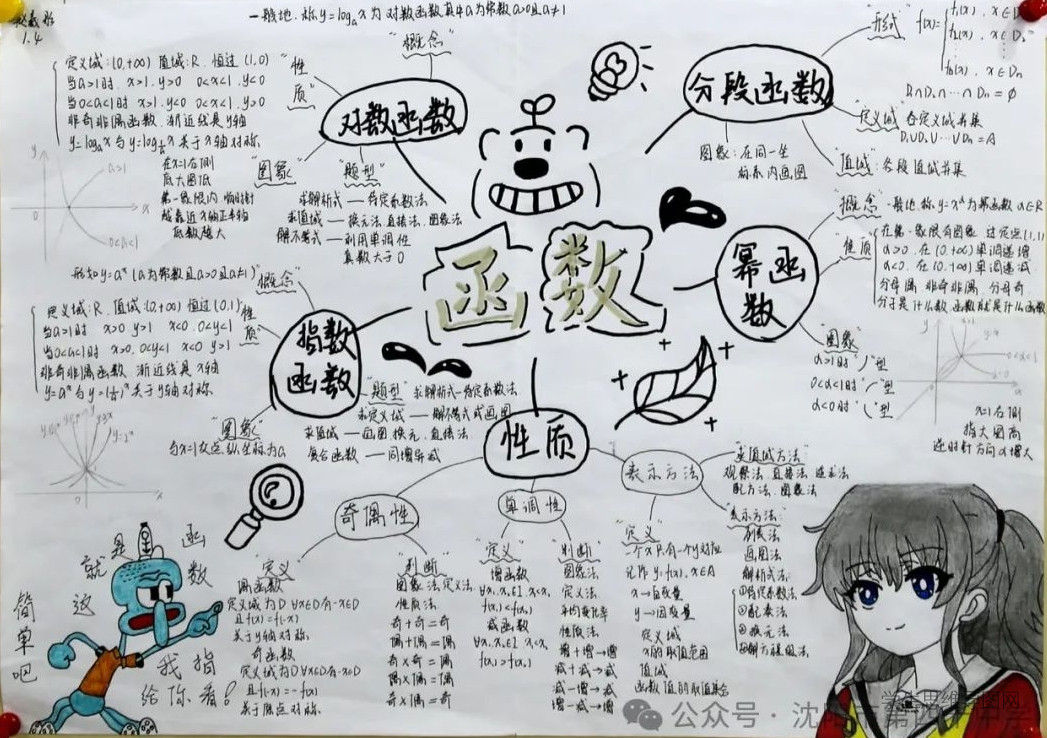 1.4
一般地,称y=logₐx为对数函数,其中a为常数a>0且a≠1
"概念"
对数函数
"性质"
定义域:(0,+∞) 值域:R 恒过(1,0)
当a>1时 x>1,y>0 0<x<1,y<0
当0<a<1时 x>1,y<0 0<x<1,y>0
非奇非偶函数 渐近线是y轴
"图象"
a>1
0<a<1
在x=1右侧
底大图低
底数越大
"题型"
求解析式——待定系数法
求值域——换元法、直接法、图象法
解不等式——利用单调性
真数大于0
分段函数
"形式"
"定义域" 各定义域并集
D₁∪D₂∪…∪Dₙ=A
"值域":各段值域并集
图象:在同一坐
标系内画图
函数
幂函数
"概念" 一般地,称y=xᵅ为幂函数 α∈R
"性质"
在第一象限有图象 过定点(1,1)
α>0,在(0,+∞)单调递增
α<0,在(0,+∞)单调递减
"图象"
α>1时"丿"型
0<α<1时
α<0时
x=1右侧
指大图高
逆时针方向α增大
形如y=aˣ(a为常数且a>0且a≠1)
"概念"
指数函数
"性质"
定义域:R 值域:(0,+∞) 恒过(0,1)
当a>1时 x>0 y>1 x<0,0<y<1
当0<a<1时 x>0,0<y<1 x<0 y>1
非奇非偶函数 渐近线是x轴
"图象"
与x=1交点,纵坐标为a
"题型" 求解析式—待定系数法
求定义域——解不等式或画图
求值域——画图、换元、直接法
复合函数——同增异减
性质
奇偶性
"定义"
偶函数
定义域为D ∀x∈D有-x∈D
且f(x)=f(-x)
关于y轴对称
奇函数
定义域为D ∀x∈D有-x∈D
且f(-x)=-f(x)
关于原点对称
"判断"
图象法、定义法
性质法
奇+奇=奇
偶+偶=偶
奇×奇=偶
偶×偶=偶
奇×偶=奇
单调性
"定义"
增函数
减函数
"判断"
图象法
定义法
平均变化率
性质法
增+增→增
减+减→减
减-增→减
增-减→增
表示方法
"求值域方法"
观察法、直接法
配方法、图象法
"表示方法"
列表法
画图法
解析式法
①待定系数法
②配凑法
③换元法
④解方程组法
"定义"
一个x只有一个y对应
记作 y=f(x),x∈A
x→自变量
y→因变量
定义域
x的取值范围
值域
函数值的取值集合
函数
就是
这
简单吧
我指
给你看!
公众号·沈阳市第四十中学